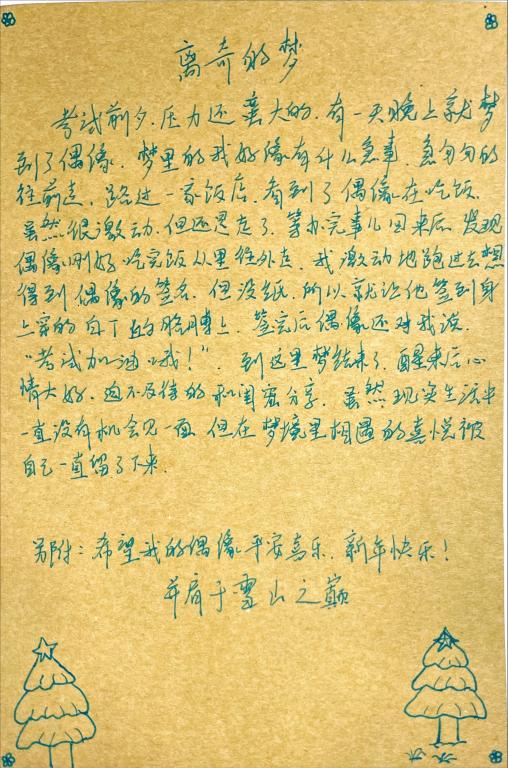 离奇的梦
考试前夕,压力还蛮大的,有一天晚上就梦
到了偶像,梦里的我好像有什么急事,急匆匆的
往前走,路过一家饭店,看到了偶像在吃饭,
虽然很激动,但还是走了,等办完事儿回来后,发现
偶像刚好吃完饭从里往外走,我激动地跑过去想
得到偶像的签名,但没纸,所以就让他签到身
上穿的白T的胳膊上,签完后偶像还对我说,
“考试加油哦!”,到这里梦结束了,醒来后心
情大好,迫不及待的和闺蜜分享,虽然现实生活中
一直没有机会见一面,但在梦境里相遇的喜悦被
自己一直留了下来.
另附:希望我的偶像平安喜乐,新年快乐!
并肩于雪山之巅